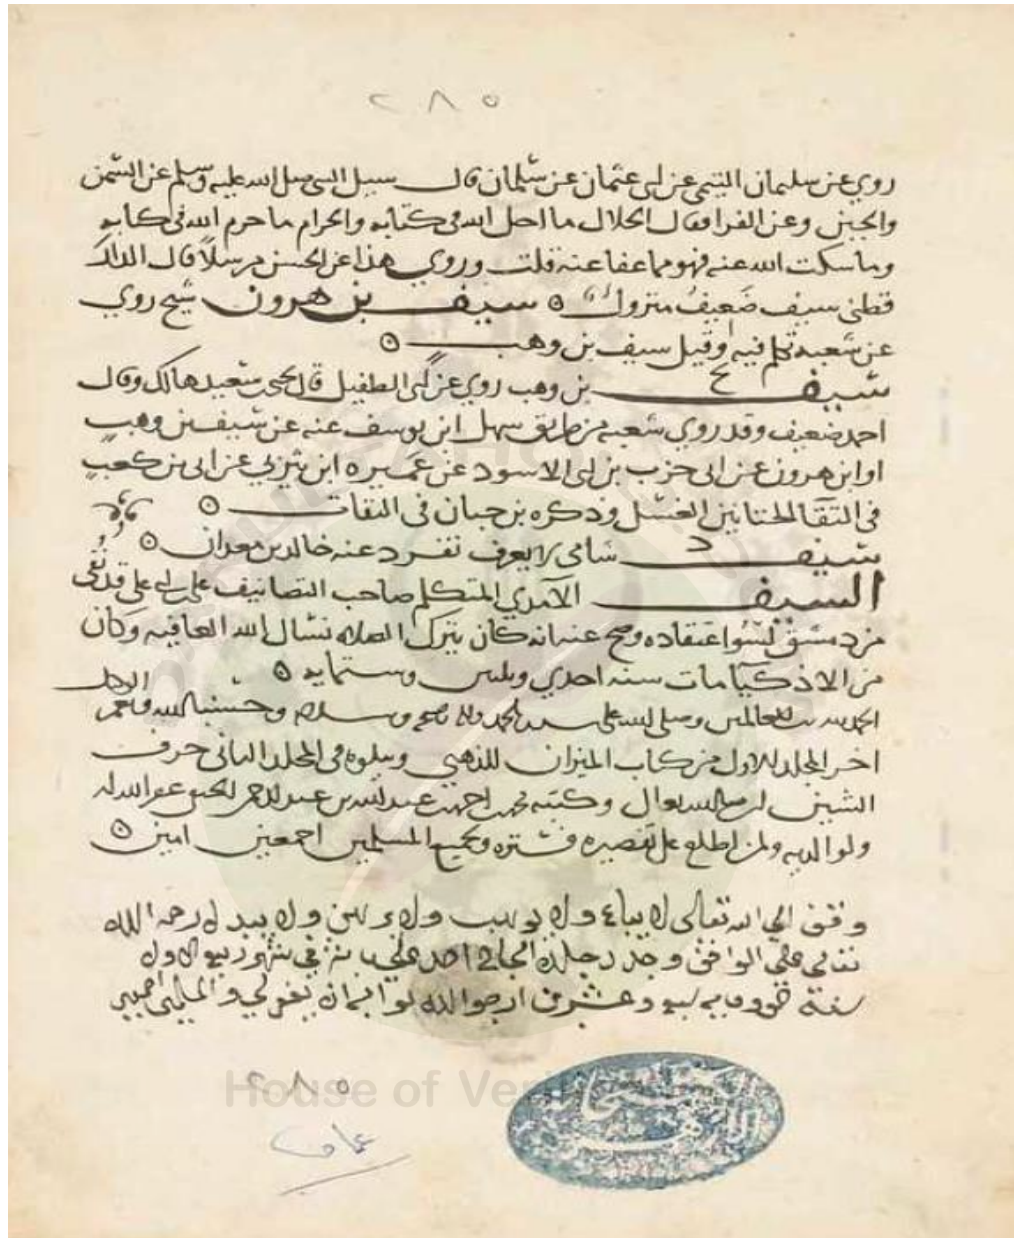 ٢٨٥
روي عن سليمان التيمي عن ابى عثمان عن سلمان قال سيل النبى صلى الله عليه وسلم عن السمن
والجبن وعن الفرا فقال الحلال ما احل الله فى كتابه والحرام ما حرم الله فى كتابه
وما سكت الله عنه فهو مما عفا عنه قلت وروي هذا عن الحسن مرسلاً قال الدار
قطنى سيف ضعيف متروك ه سيف بن هرون شيخ روي
عن شعبة تكلم فيه وقيل سيف بن وهب ه
سيف بن وهب روي عن ابى الطفيل قال يحيى بن سعيد هالك وقال
احمد ضعيف وقد روي شعبه من طريق سهل ابن يوسف عنه عن سيف بن وهب
او ابن هرون عن ابى حرب بن ابى الاسود عن عميره ابن يثربي عن ابى بن كعب
فى التقا الختانين الغسل وذكره بن حبان فى الثقات ه
سيف شامى لا يعرف تفرد عنه خالد بن معدان ه
السيف الآمدي المتكلم صاحب التصانيف على بن ابي على قد نفى
من دمشق لسوا عتقاده وصح عنه انه كان يترك الصلاه نسال الله العافيه وكان
من الاذكيا مات سنه احدي وثلثين وستمايه ه
الحمد لله رب العالمين وصلى الله على سيدنا محمد واله وصحبه وسلامه وحسبنا الله ونعم الوكيل
اخر المجلد الاول من كتاب الميزان للذهبي ويتلوه فى المجلد الثانى حرف
الشين ان شا الله تعالى وكتبه محمد بن احمد بن عبد الله بن عبد الرحمن عفر الله له
ولوالديه ولمن اطلع على تقصيره فستره ولجميع المسلمين اجمعين امين ه
وقف الي الله تعالى لا يباع ولا يوهب ولا يرهن ولا يبدل رحمه الله
تعالي علي الواقف وجدد جلده احمد علي في شهر ربيع الاول
سنة وعشرين ارجوا الله
٢٨٥
House of Veri